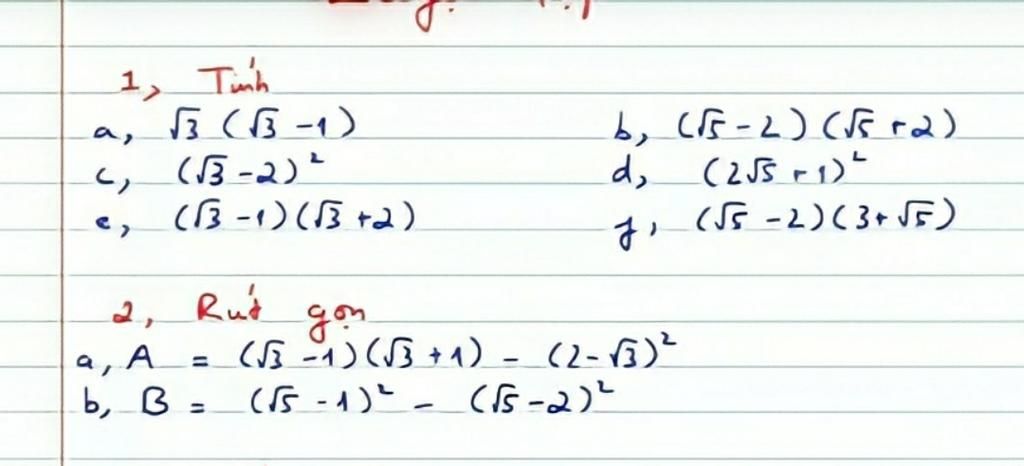 1, Tính
a, √3 (√3 - 1) b, (√5 - 2) (√5 + 2)
c, (√3 - 2)² d, (2√5 + 1)²
e, (√3 - 1) (√3 + 2) f, (√5 - 2) (3 + √5)
2, Rút gọn
a, A = (√3 - 1) (√3 + 1) - (2 - √3)²
b, B = (√5 - 1)² - (√5 - 2)²